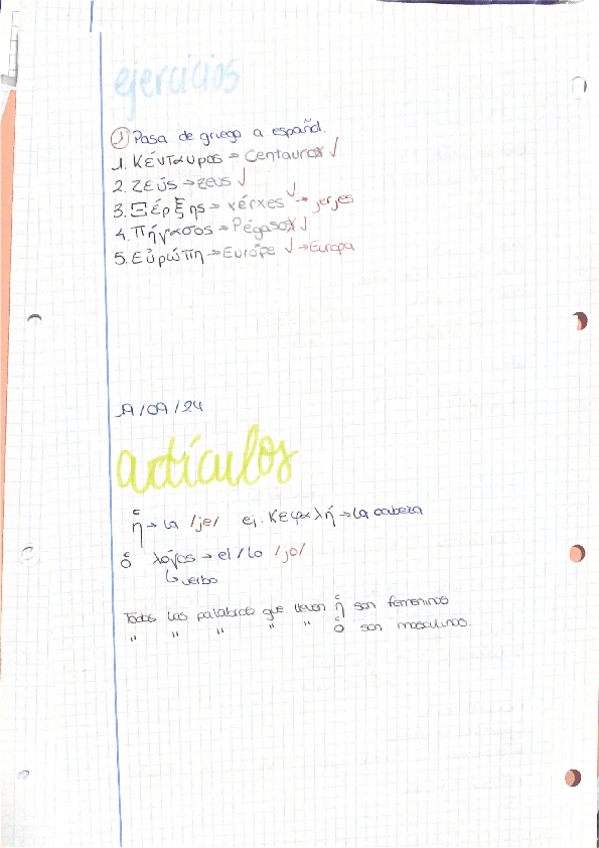 ejercicios
① Pasa de griego a español.
1. Κένταυρος → Centauro
2. Ζεύς → Zeus
3. Ξέρξης → xérxes → jerjes
4. Πήγασος → Pégaso
5. Εὐρώπη → Európe → Europa
artículos
ἡ → la /je/ ej. Κεφαλή → la cabeza
ὁ λόγos → el / lo /jo/
↳ verbo
Todas las palabras que lleven ἡ son femeninos
" " " " " ὁ son masculinos.